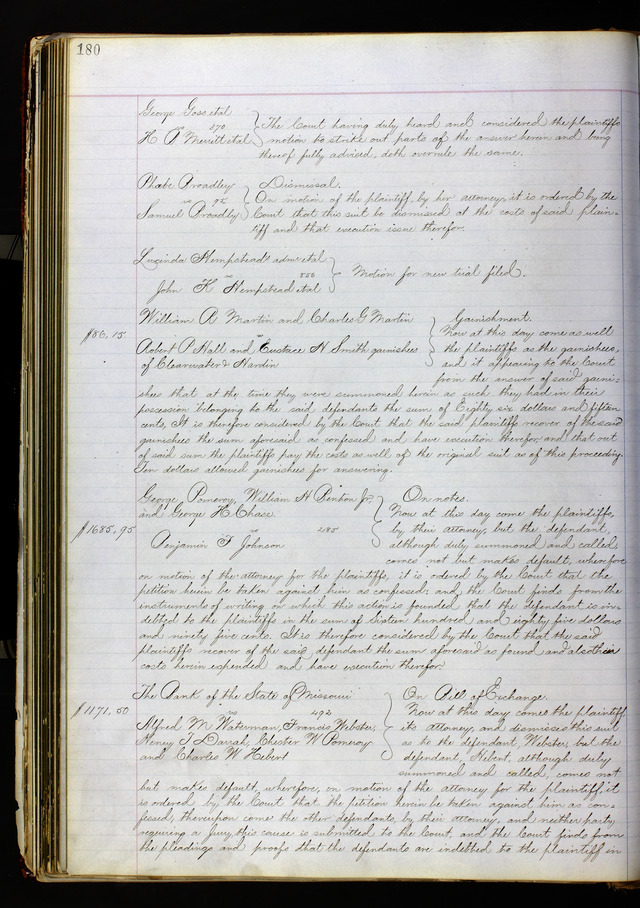 180
George Goss etal
vs 270
H. A. Merritt etal
The Court having duly heard and considered the plaintiffs
motion to strike out parts of the answer herein and being
thereof fully advised, doth overrule the same.
Phoebe Broadley
vs 95
Samuel Broadly
Dismissal.
On motion of the plaintiff, by her attorney, it is ordered by the
Court that this suit be dismissed at the costs of said plain-
tiff and that execution issue therefor.
Lucinda Hempstead's admr etal
vs 856
John K Hempstead etal
Motion for new trial filed.
William R Martin and Charles G Martin
vs
$86,15
Robert P Hall and Eustace H Smith garnishees
of Clearwater & Hardin
Garnishment.
Now at this day come as well
the plaintiffs as the garnishees,
and it appearing to the Court
from the answer of said garni-
shees that at the time they were summoned herein as such they had in their
possession belonging to the said defendants the sum of Eighty six dollars and fifteen
cents, It is therefore considered by the Court that the said plaintiffs recover of the said
garnishees the sum aforesaid as confessed and have execution therefor, and that out
of said sum the plaintiffs pay the costs as well of the original suit as of this proceeding.
Ten dollars allowed garnishees for answering.
George Pomeroy, William H Benton Jr.
and George H Chase.
vs 285
$1685,95
Benjamin F Johnson
On notes.
Now at this day come the plaintiffs,
by their attorney, but the defendant,
although duly summoned and called
comes not but makes default, wherefore
on motion of the attorney for the plaintiffs, it is ordered by the Court that the
petition herein be taken against him as confessed; and the Court finds from the
instruments of writing on which this action is founded that the defendant is in-
debted to the plaintiffs in the sum of Sixteen hundred and eighty five dollars
and ninety five cents. It is therefore considered by the Court that the said
plaintiffs recover of the said defendant the sum aforesaid as found and also their
costs herein expended and have execution therefor.
The Bank of the State of Missouri
vs 492
$1171,50
Alfred M Waterman, Francis Webster,
Henry T Darrah, Chester W Pomeroy
and Charles W Hebert
On Bill of Exchange.
Now at this day comes the plaintiff
its attorney, and dismisses this suit
as to the defendant, Webster, but the
defendant, Hebert, although duly
summoned and called, comes not
but makes default, wherefore, on motion of the attorney for the plaintiff, it
is ordered by the Court that the petition herein be taken against him as con-
fessed, thereupon come the other defendants, by their attorney, and neither party
requiring a jury, this cause is submitted to the Court, and the Court finds from
the pleadings and proofs that the defendants are indebted to the plaintiff in